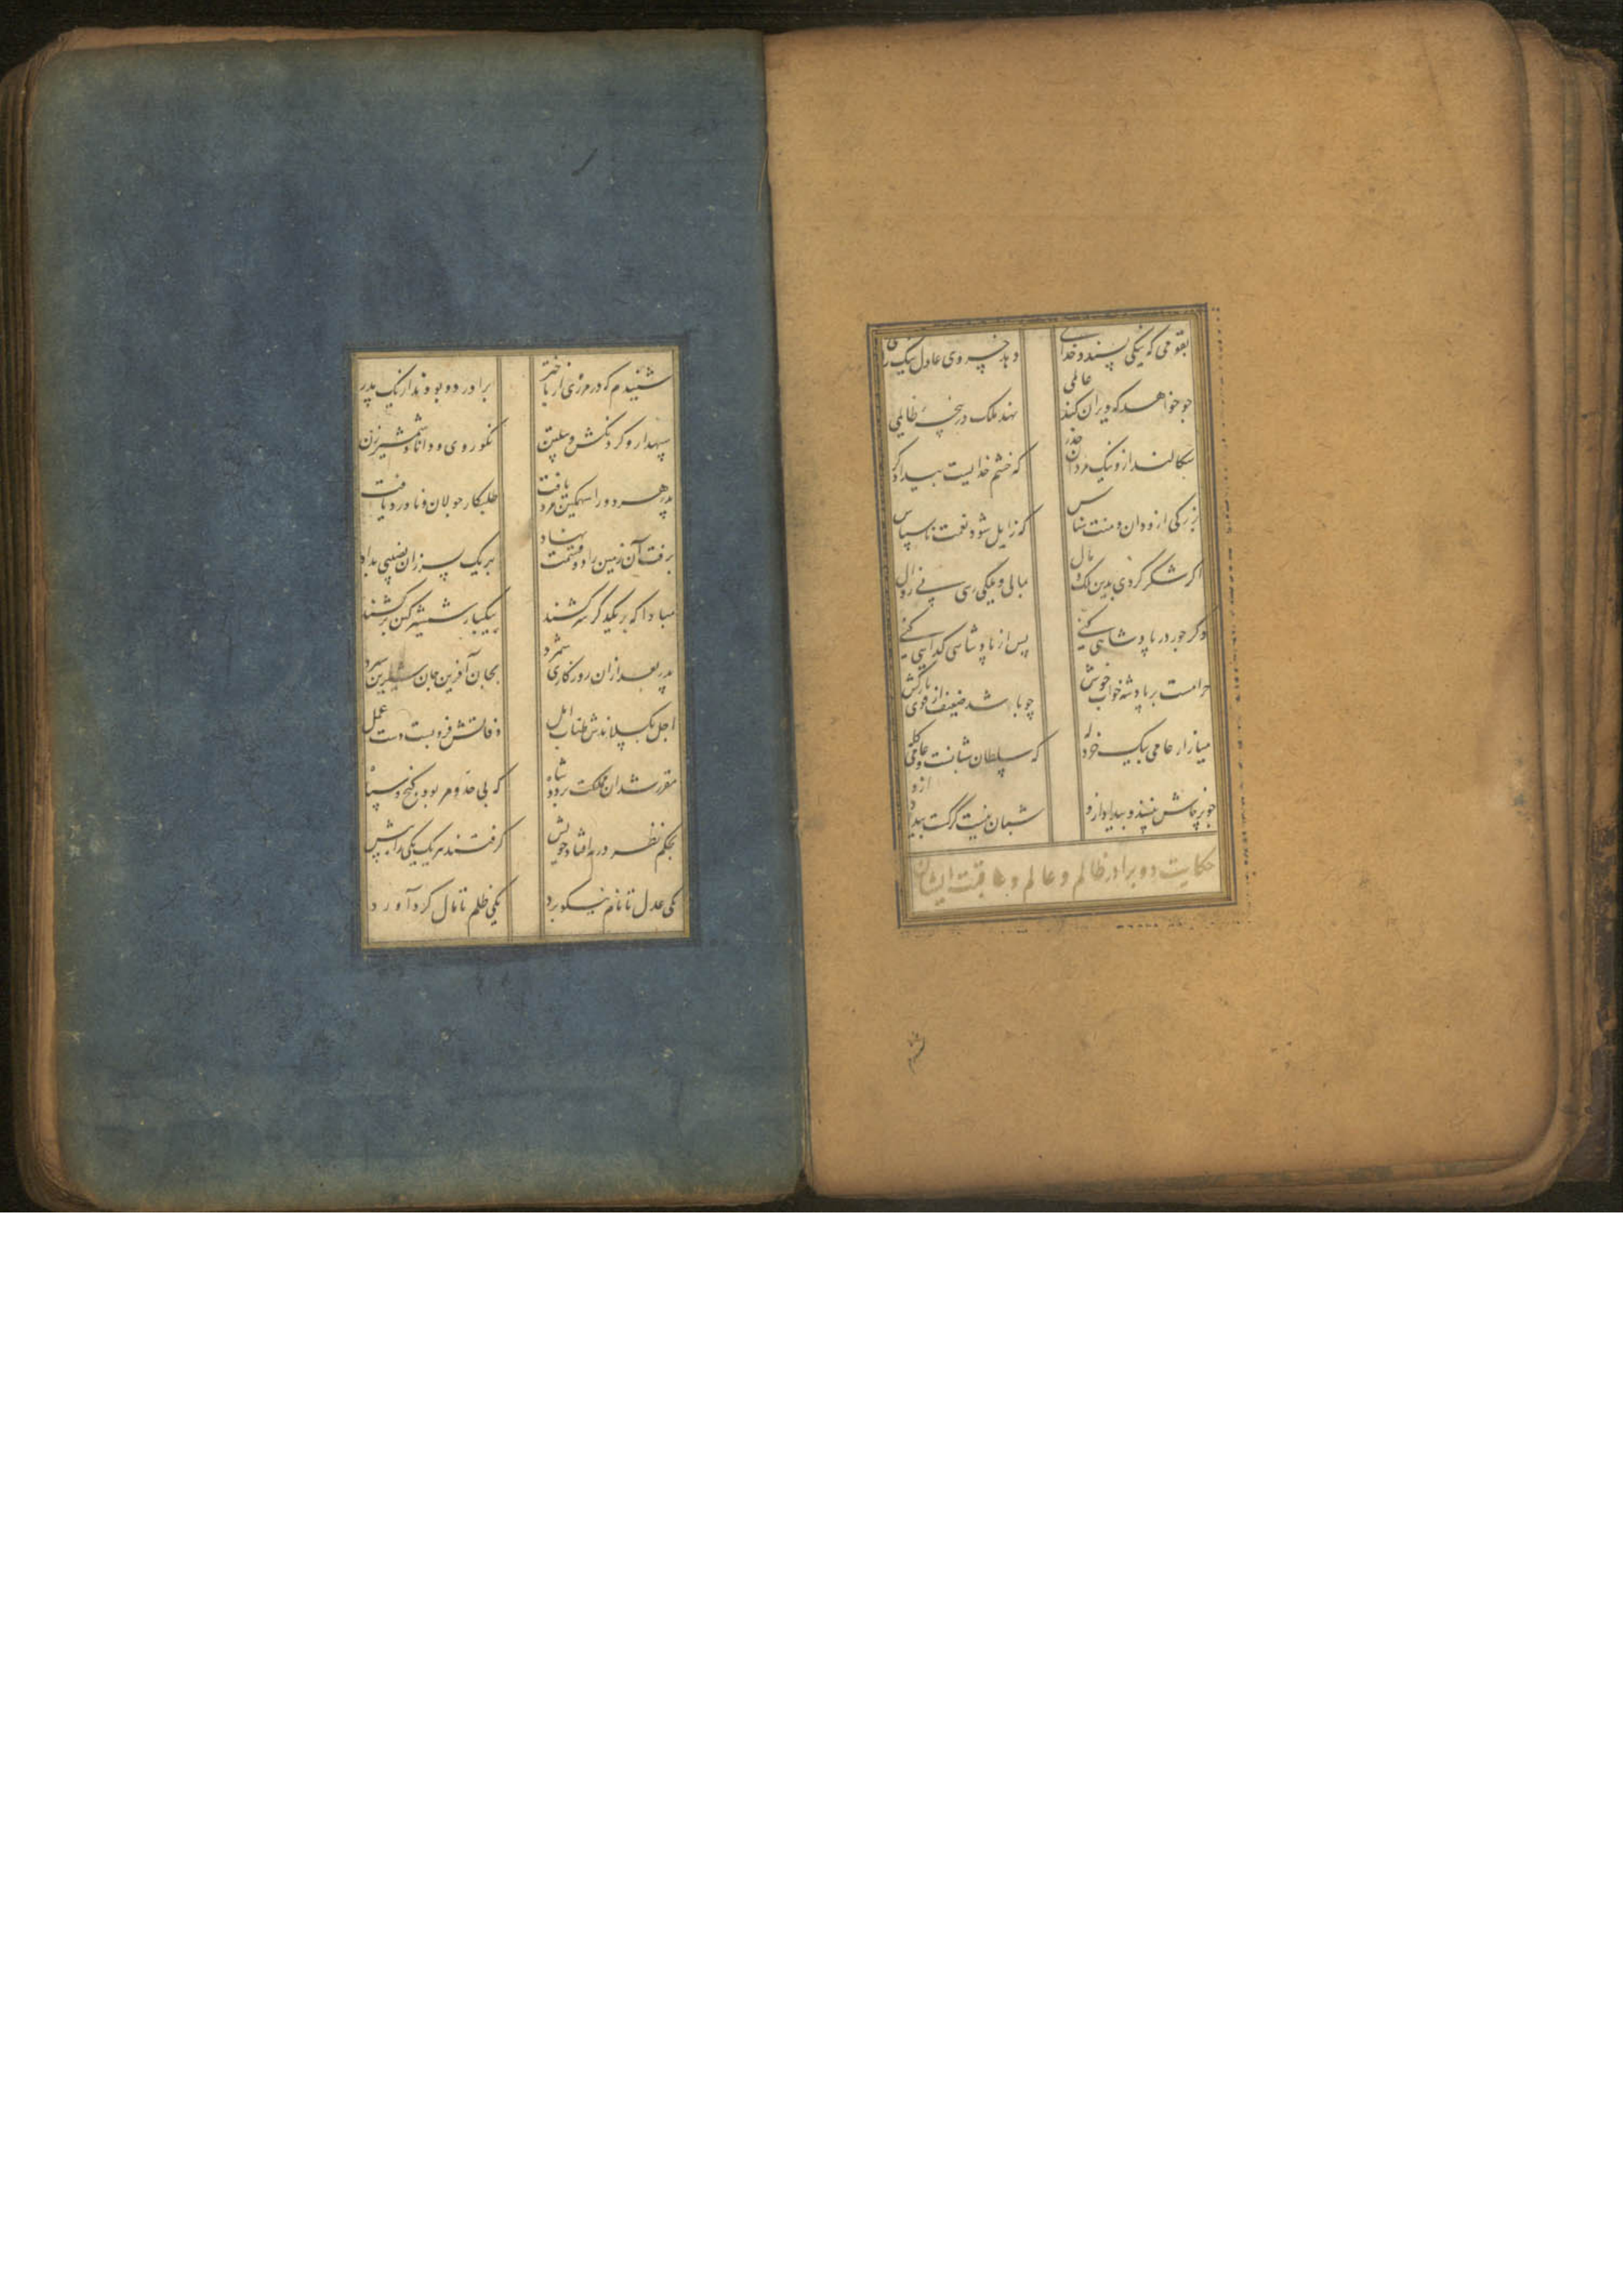 بقومی که نیکی پسندد خدای
دهد خسروی عادل نیک رای
چو خواهد که ویران کند عالمی
نهد ملک در پنجهٔ ظالمی
سکالند ازو نیک مردان حذر
که خشم خدایست بیدادگر
بزرگی ازو دان و منت شناس
که زایل شود نعمت ناسپاس
اگر شکر کردی بدین ملک و مال
بمالی و ملکی رسی بی زوال
وگر جور در پادشاهی کنی
پس از پادشاهی گدایی کنی
حرامست بر پادشه خواب خوش
چو باشد ضعیف از قوی بارکش
میازار عامی بیک خردله
که سلطان شبانست و عامی گله
چو پرخاش بینند و بیداد ازو
شبان نیست گرگست بیداد ازو
حکایت دو برادر ظالم و عالم و عاقبت ایشان
شنیدم که در مرزی از باختر
برادر دو بودند از یک پدر
سپهدار و گردنکش و پیلتن
نکوروی و دانا و شمشیرزن
پدر هر دو را سهمگین مرد یافت
طلبکار جولان و ناورد یافت
برفت آن زمین را دو قسمت نهاد
بهر یک پسر زان نصیبی بداد
مبادا که بر یکدگر سر کشند
به پیکار شمشیر کین برکشند
پدر بعد از آن روزگاری شمرد
بجان آفرین جان شیرین سپرد
اجل بگسلاندش طناب امل
وفاتش فروبست دست عمل
مقرر شد آن مملکت بر دو شاه
که بی حد و مر بود گنج و سپاه
بحکم نظر در به افتاد خویش
گرفتند هر یک یکی راه پیش
یکی عدل تا نام نیکو برد
یکی ظلم تا مال گرد آورد